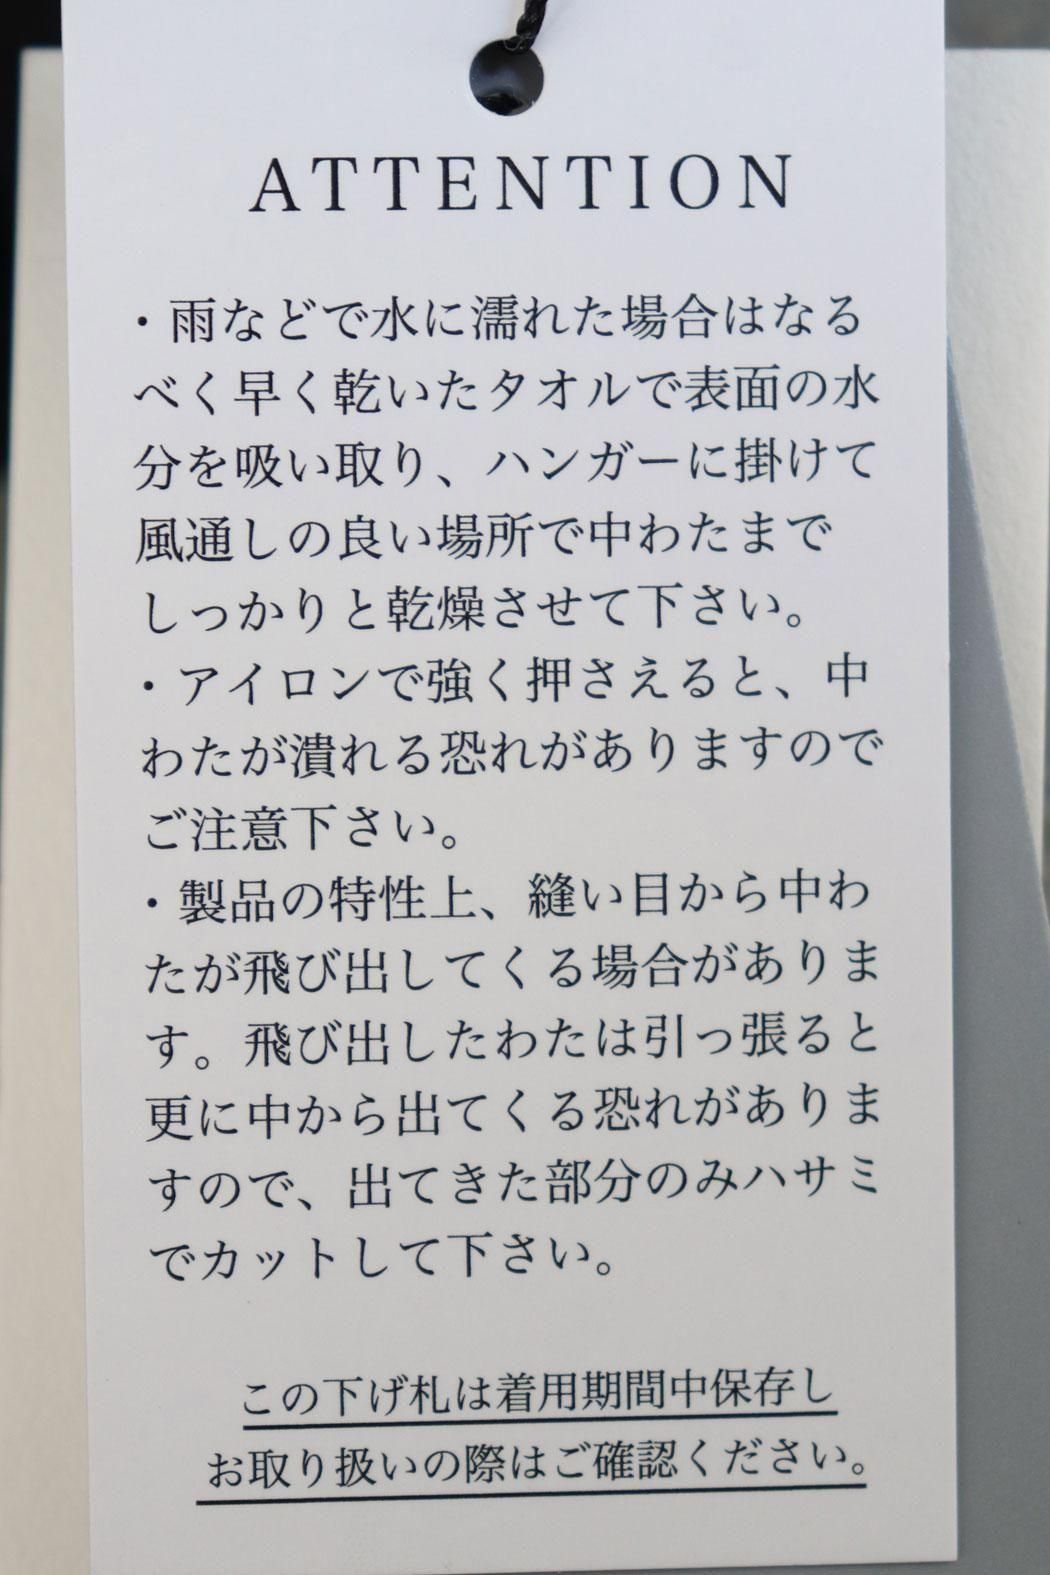 ATTENTION
・雨などで水に濡れた場合はなる
べく早く乾いたタオルで表面の水
分を吸い取り、ハンガーに掛けて
風通しの良い場所で中わたまで
しっかりと乾燥させて下さい。
・アイロンで強く押さえると、中
わたが潰れる恐れがありますので
ご注意下さい。
・製品の特性上、縫い目から中わ
たが飛び出してくる場合がありま
す。飛び出したわたは引っ張ると
更に中から出てくる恐れがありま
すので、出てきた部分のみハサミ
でカットして下さい。
この下げ札は着用期間中保存し
お取り扱いの際はご確認ください。